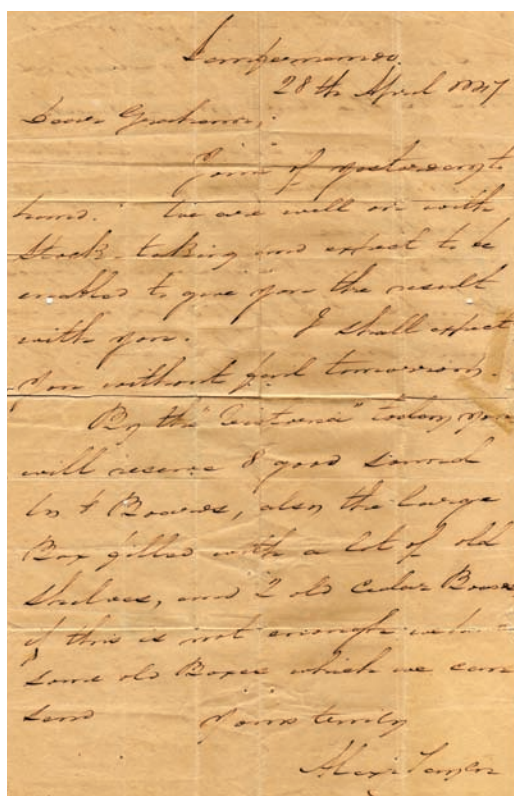 28th April
Dear Grahame,
Yours of yesterday to
hand. We are well on with
Stock-taking and expect to be
enabled to give you the result
with you. I shall expect
you without fail tomorrow.
By the "Victoria" today you
will receive 8 good
Boards, also the large
Box filled with a lot of old
Shelves, and 2 old cedar
if this is not enough we have
some old Boxes which we can
send Yours truly
Alex Taylor